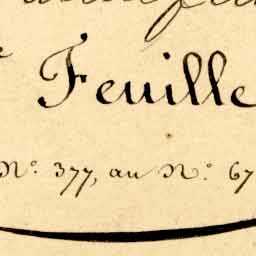 Feuille
N.º 377, au N.º 67